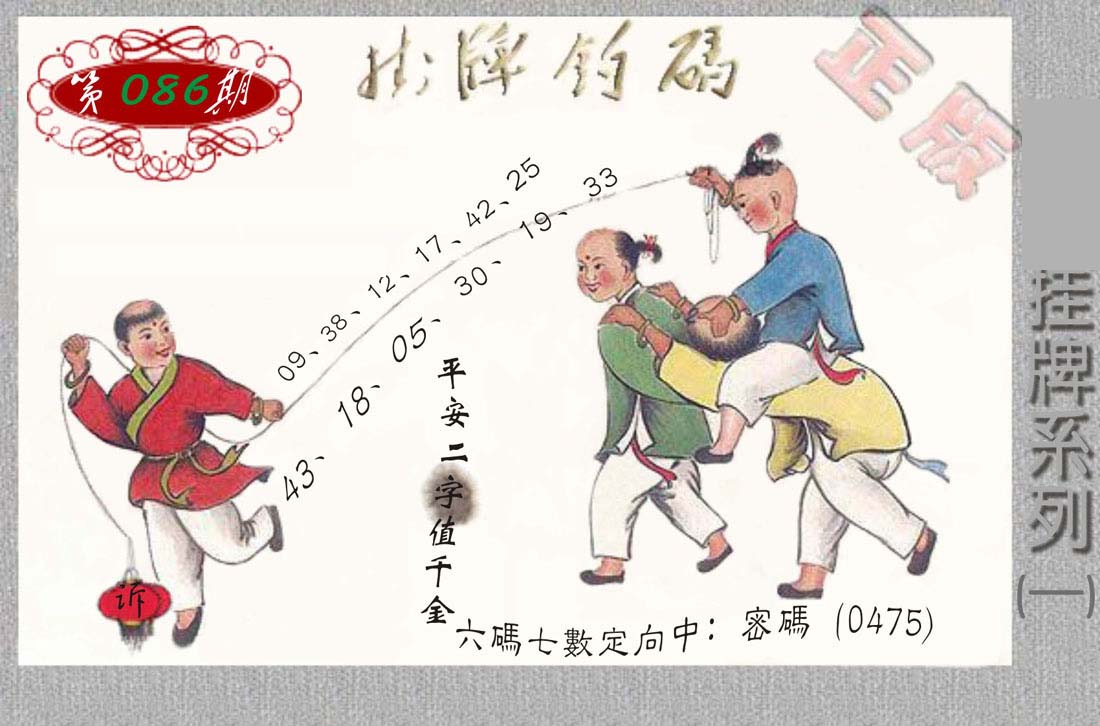 第086期
掛牌釣碼
正版
09、38、12、17、42、25
43、18、05、30、19、33
平安二字值千金
诉
六碼七數定向中：密碼（0475）
挂牌系列(一)